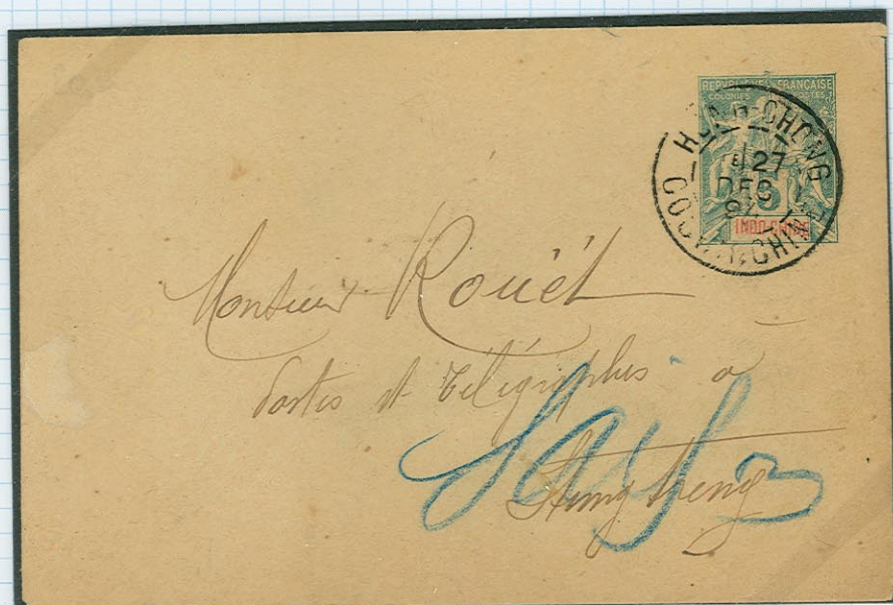 REPUBLIQUE FRANÇAISE
COLONIES POSTES
5
INDO-CHINE
27
DEC
94
COCHINCHINE
Monsieur Rouët
Postes et Télégraphes à
Stung Treng